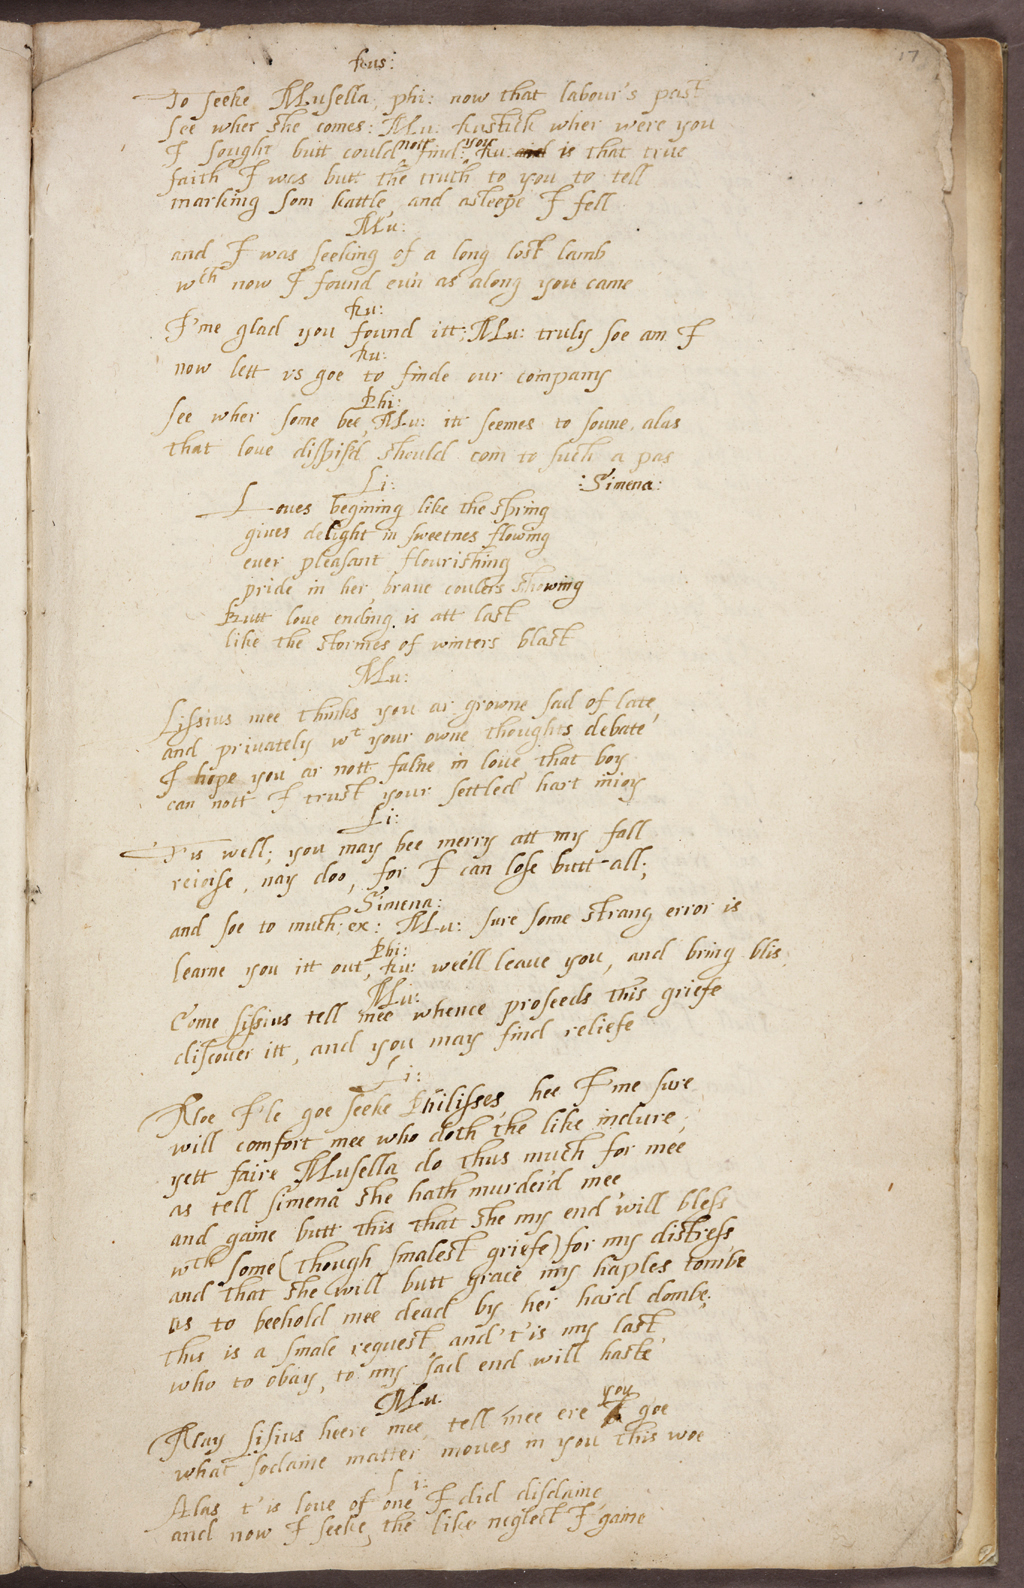 17
Rus:
To seeke Musella, phi: now that labour's past
see wher she comes: Mu: Rustick wher were you
I sought butt could nott find you: Ru: is that true
faith I was butt the truth to you to tell
marking som kattle and asleepe I fell
Mu:
and I was seeking of a long lost lamb
wch now I found eu'n as along you came
Ru:
I'me glad you found itt; Mu: truly soe am I
Ru:
now lett vs goe to finde our company
Phi:
see wher some bee, Mu: itt seemes to soune, alas
that loue dispis'd should com to such a pas
Li: :Simena:
Loues begining like the spring
giues delight in sweetnes flowing
euer pleasant flourishing
pride in her braue coulers showing
Butt loue ending is att last
like the stormes of winters blast
Mu:
Lissius mee thinks you ar growne sad of late
and priuately wt your owne thoughts debate
I hope you ar nott falne in loue that boy
can nott I trust your settled hart inioy
Li:
T'is well; you may bee merry att my fall
reioise, nay doo, for I can lose butt all;
Simena:
and soe to much: ex: Mu: sure some strang error is
Phi:
learne you itt out, Ru: wee'll leaue you, and bring blis
Mu:
Come lissius tell mee whence proseeds this griefe
discouer itt, and you may find reliefe
Li:
Noe I'le goe seeke Philisses, hee I'me sure
will comfort mee who doth the like indure;
yett faire Musella do thus much for mee
as tell simena she hath murder'd mee
and gaine butt this that she my end will bless
wth some (though smalest griefe) for my distress
and that she will butt grace my haples tombe
as to beehold mee dead by her hard dombe;
this is a smale request, and t'is my last
who to obay, to my sad end will haste
Mu.
Nay lisius heere mee, tell mee ere you goe
what sodaine matter moues in you this woe
Li:
Alas t'is loue of one I did disdaine
and now I seeke, the like neglect I gaine